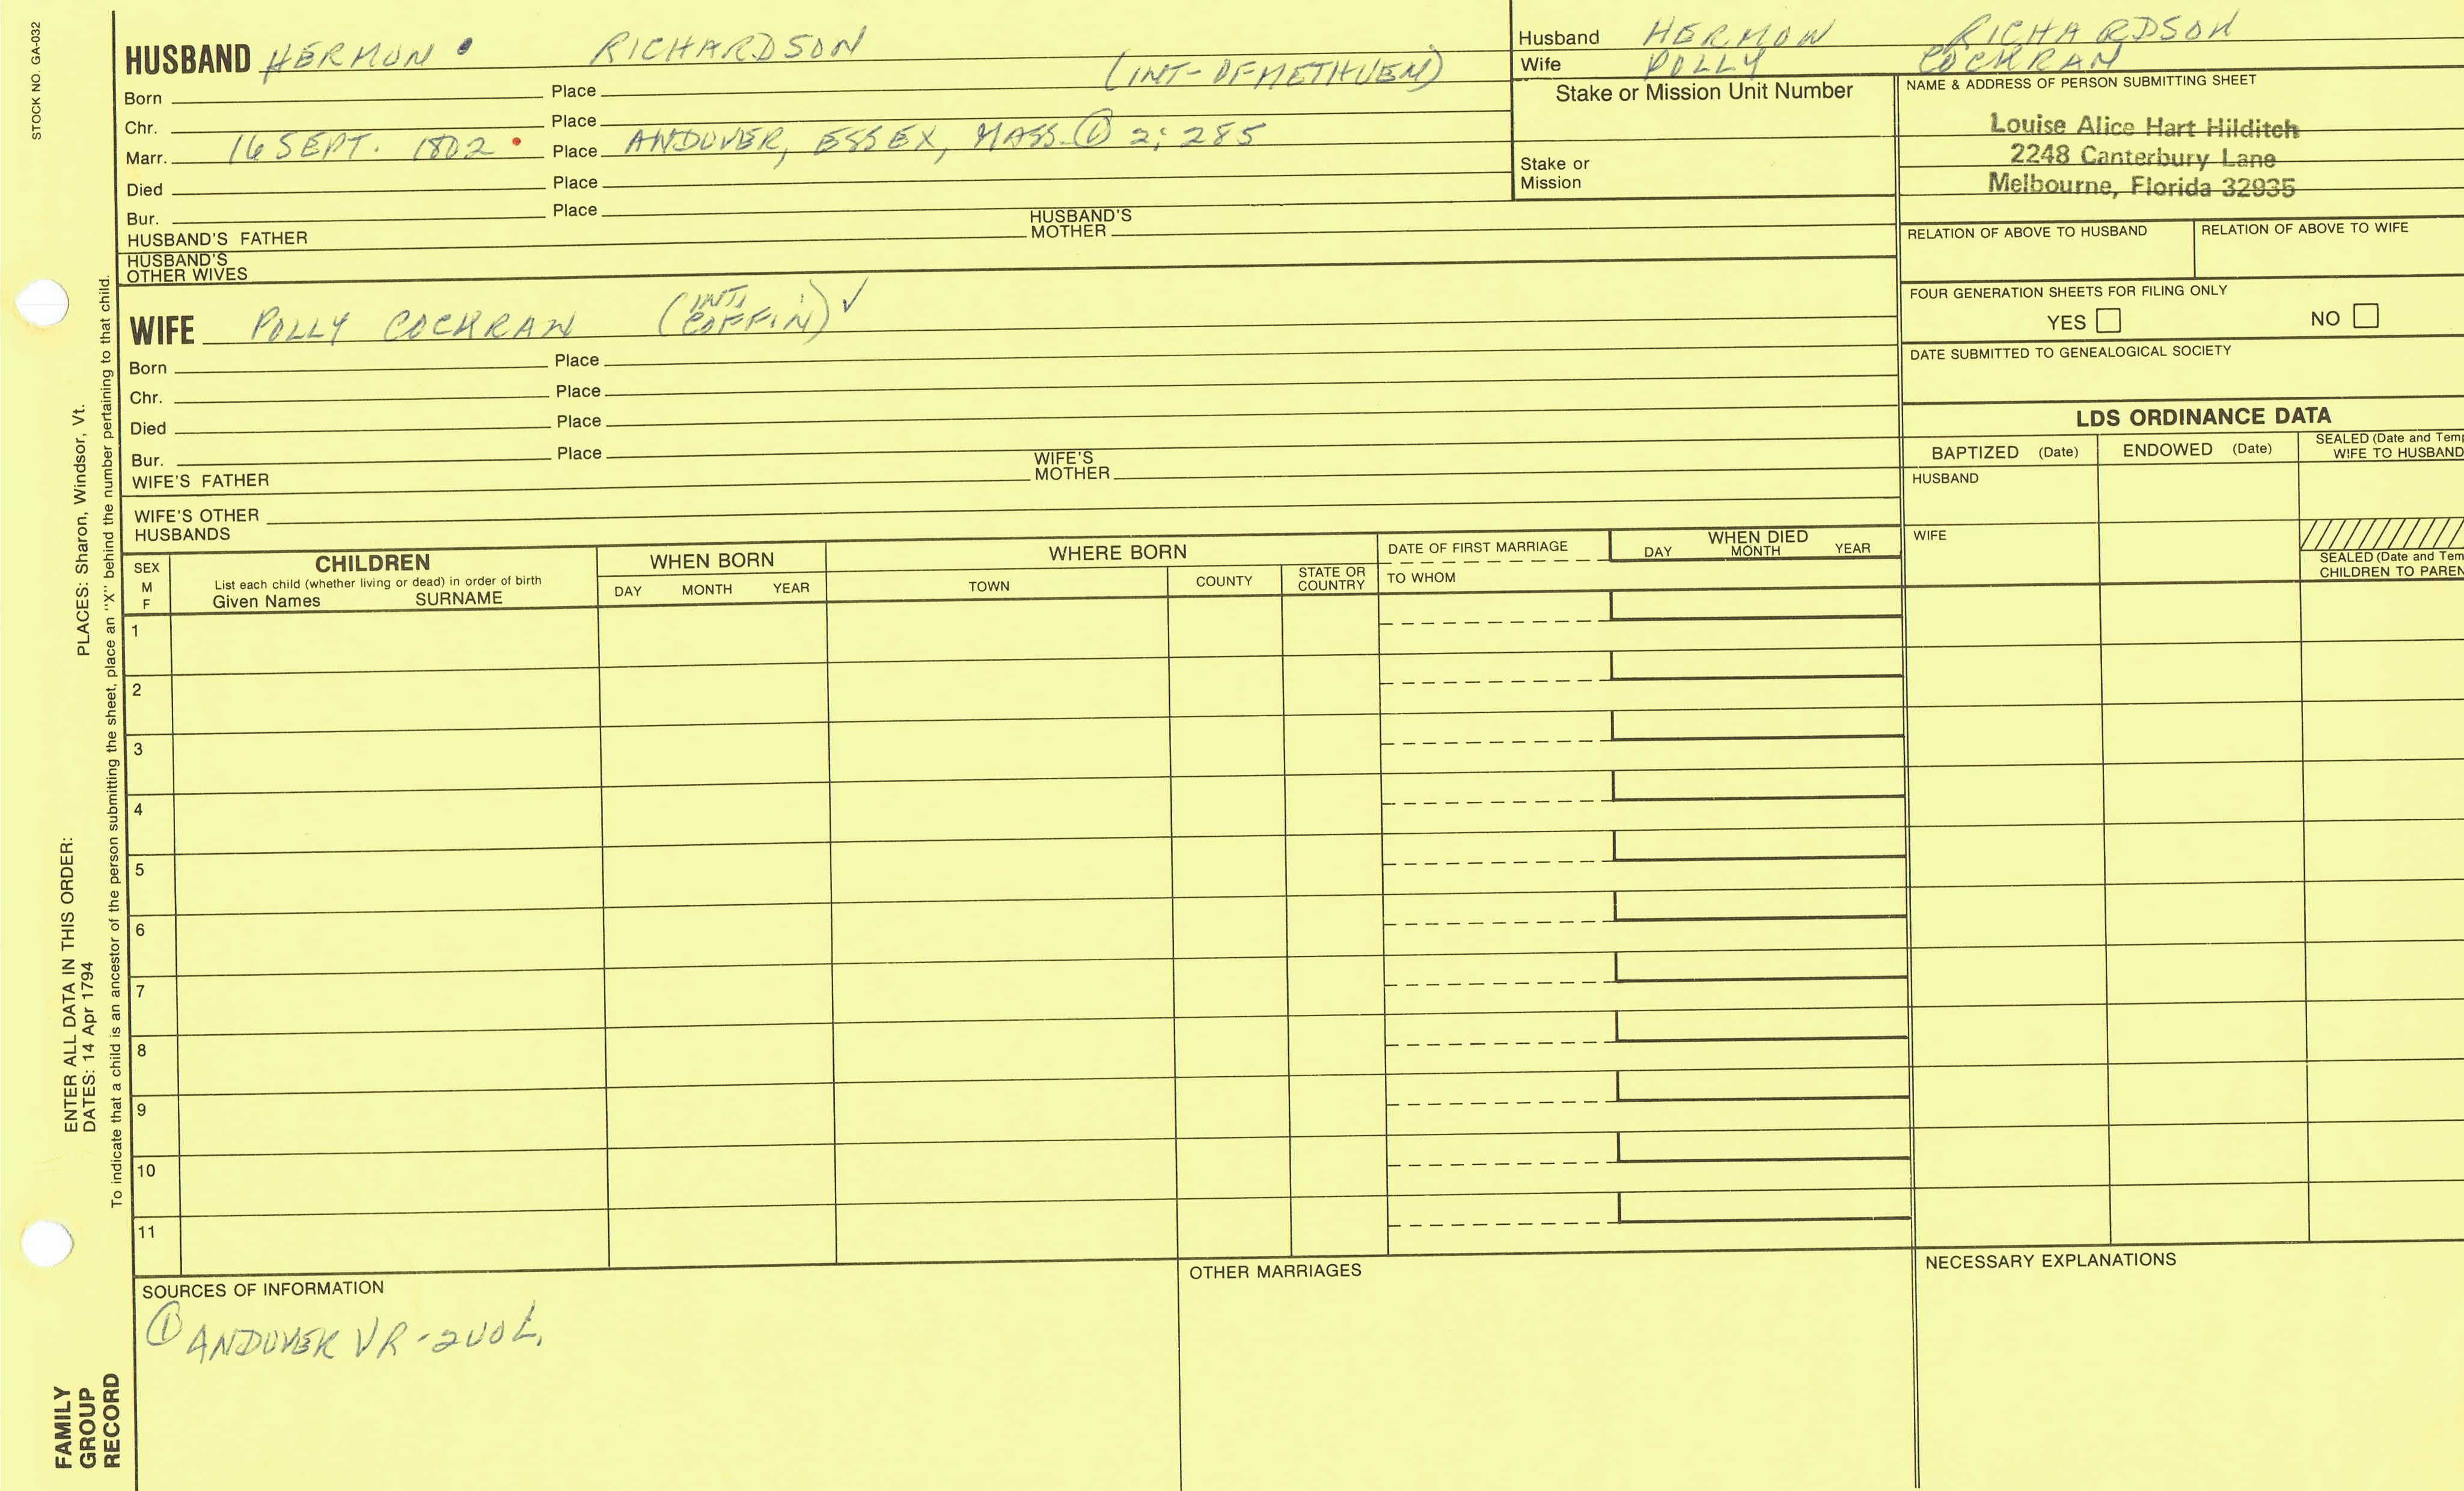 STOCK NO. GA-032
HUSBAND HERMON RICHARDSON (INT- OF METHUEN)
Born Place
Chr. Place
Marr. 16 SEPT. 1802 Place ANDOVER, ESSEX, MASS. ① 2: 285
Died Place
Bur. Place
HUSBAND'S FATHER HUSBAND'S MOTHER
HUSBAND'S OTHER WIVES
WIFE POLLY COCKRAN (INT. COFFIN) ✓
Born Place
Chr. Place
Died Place
Bur. Place
WIFE'S FATHER WIFE'S MOTHER
WIFE'S OTHER HUSBANDS
Husband HERMON RICHARDSON
Wife POLLY COCKRAN
Stake or Mission Unit Number
Stake or
Mission
NAME & ADDRESS OF PERSON SUBMITTING SHEET
Louise Alice Hart Hilditch
2248 Canterbury Lane
Melbourne, Florida 32935
RELATION OF ABOVE TO HUSBAND RELATION OF ABOVE TO WIFE
FOUR GENERATION SHEETS FOR FILING ONLY
YES NO
DATE SUBMITTED TO GENEALOGICAL SOCIETY
LDS ORDINANCE DATA
BAPTIZED (Date) ENDOWED (Date) SEALED (Date and Temp
WIFE TO HUSBAND
HUSBAND
WIFE
SEALED (Date and Tem
CHILDREN TO PAREN
SEX
M
F
CHILDREN
List each child (whether living or dead) in order of birth
Given Names SURNAME
WHEN BORN
DAY MONTH YEAR
WHERE BORN
TOWN COUNTY STATE OR COUNTRY
DATE OF FIRST MARRIAGE
TO WHOM
WHEN DIED
DAY MONTH YEAR
1
2
3
4
5
6
7
8
9
10
11
SOURCES OF INFORMATION
① ANDOVER VR - 2 VOL.
OTHER MARRIAGES
NECESSARY EXPLANATIONS
ENTER ALL DATA IN THIS ORDER:
DATES: 14 Apr 1794 PLACES: Sharon, Windsor, Vt.
To indicate that a child is an ancestor of the person submitting the sheet, place an "X" behind the number pertaining to that child.
FAMILY
GROUP
RECORD